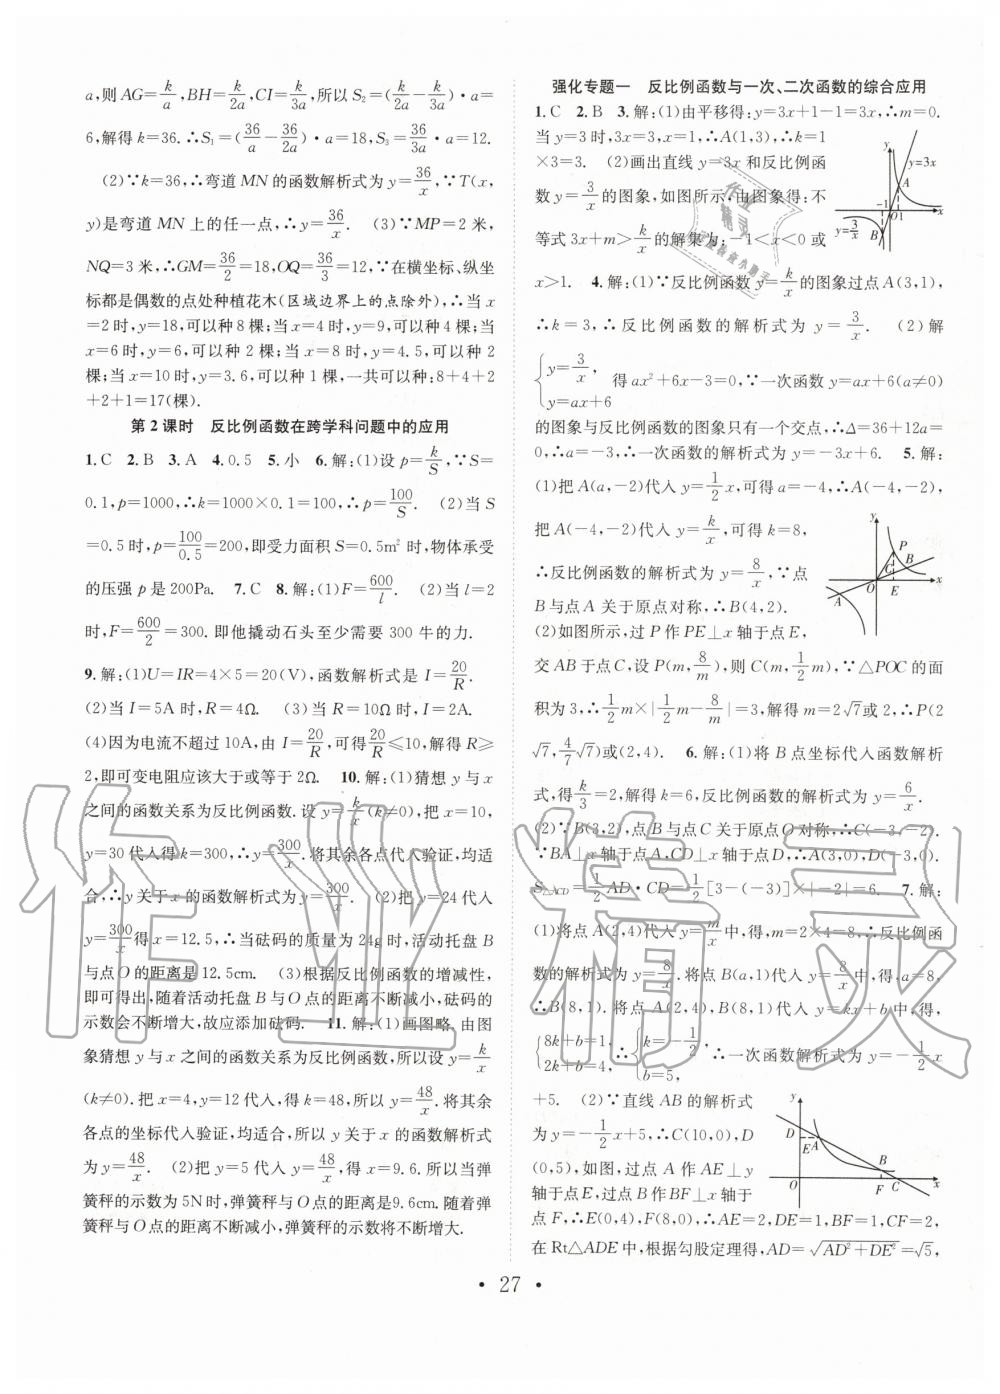 a,则AG=k/a,BH=k/2a,CI=k/3a,所以S₂=(k/2a-k/3a)·a=
6,解得k=36.∴S₁=(36/a-36/2a)·a=18,S₃=36/3a·a=12.
(2)∵k=36,∴弯道MN的函数解析式为y=36/x,∵T(x,
y)是弯道MN上的任一点,∴y=36/x. (3)∵MP=2米,
NQ=3米,∴GM=36/2=18,OQ=36/3=12,∵在横坐标、纵坐
标都是偶数的点处种植花木(区域边界上的点除外),∴当x
=2时,y=18,可以种8棵;当x=4时,y=9,可以种4棵;当
x=6时,y=6,可以种2棵;当x=8时,y=4.5,可以种2
棵;当x=10时,y=3.6,可以种1棵,一共可以种:8+4+2
+2+1=17(棵).
第2课时 反比例函数在跨学科问题中的应用
1.C 2.B 3.A 4.0.5 5.小 6.解:(1)设p=k/S,∵S=
0.1,p=1000,∴k=1000×0.1=100,∴p=100/S. (2)当S
=0.5时,p=100/0.5=200,即受力面积S=0.5m²时,物体承受
的压强p是200Pa. 7.C 8.解:(1)F=600/l. (2)当l=2
时,F=600/2=300.即他撬动石头至少需要300牛的力.
9.解:(1)U=IR=4×5=20(V),函数解析式是I=20/R.
(2)当I=5A时,R=4Ω. (3)当R=10Ω时,I=2A.
(4)因为电流不超过10A,由I=20/R,可得20/R≤10,解得R≥
2,即可变电阻应该大于或等于2Ω. 10.解:(1)猜想y与x
之间的函数关系为反比例函数.设y=k/x(k≠0),把x=10,
y=30代入得k=300,∴y=300/x.将其余各点代入验证,均适
合,∴y关于x的函数解析式为y=300/x. (2)把y=24代入
y=300/x得x=12.5,∴当砝码的质量为24g时,活动托盘B
与点O的距离是12.5cm. (3)根据反比例函数的增减性,
即可得出,随着活动托盘B与O点的距离不断减小,砝码的
示数会不断增大,故应添加砝码. 11.解:(1)画图略,由图
象猜想y与x之间的函数关系为反比例函数,所以设y=k/x
(k≠0).把x=12,y=4代入,得k=48,所以y=48/x.将其余
各点的坐标代入验证,均适合,所以y关于x的函数解析式
为y=48/x. (2)把y=5代入y=48/x,得x=9.6.所以当弹
簧秤的示数为5N时,弹簧秤与O点的距离是9.6cm.随着弹
簧秤与O点的距离不断减小,弹簧秤的示数将不断增大.
强化专题一 反比例函数与一次、二次函数的综合应用
1.C 2.B 3.解:(1)由平移得:y=3x+1-1=3x,∴m=0.
当y=3时,3x=3,x=1,∴A(1,3),∴k=1
×3=3. (2)画出直线y=3x和反比例函
数y=3/x的图象,如图所示,由图象得:不
等式3x+m>k/x的解集为:-1<x<0或
y y=3x A -1 O 1 x B y=3/x
x>1. 4.解:(1)∵反比例函数y=k/x的图象过点A(3,1),
∴k=3,∴反比例函数的解析式为y=3/x. (2)解
{y=3/x, y=ax+6 得ax²+6x-3=0,∵一次函数y=ax+6(a≠0)
的图象与反比例函数的图象只有一个交点,∴Δ=36+12a=
0,∴a=-3,∴一次函数解析式为y=-3x+6. 5.解:
(1)把A(a,-2)代入y=1/2x,可得a=-4,∴A(-4,-2),
把A(-4,-2)代入y=k/x,可得k=8,
∴反比例函数的解析式为y=8/x,∵点
B与点A关于原点对称,∴B(4,2).
(2)如图所示,过P作PE⊥x轴于点E,
y P B C O E x A
交AB于点C,设P(m,8/m),则C(m,1/2m),∵△POC的面
积为3,∴1/2m×|1/2m-8/m|=3,解得m=2√7或2,∴P(2
√7,4/7√7)或(2,4). 6.解:(1)将B点坐标代入函数解析
式,得k/3=2,解得k=6,反比例函数的解析式为y=6/x.
(2)∵B(3,2),点B与点C关于原点O对称,∴C(-3,-2).
∵BA⊥x轴于点A,CD⊥x轴于点D,∴A(3,0),D(-3,0).
S△ACD=1/2AD·CD=1/2[3-(-3)]×|-2|=6. 7.解:
(1)将点A(2,4)代入y=m/x中,得,m=2×4=8,∴反比例函
数的解析式为y=8/x.将点B(a,1)代入y=8/x中,得,a=8,
∴B(8,1).将点A(2,4),B(8,1)代入y=kx+b中,得,
{8k+b=1, 2k+b=4, ∴{k=-1/2, b=5, ∴一次函数解析式为y=-1/2x
+5. (2)∵直线AB的解析式
为y=-1/2x+5,∴C(10,0),D
(0,5),如图,过点A作AE⊥y
轴于点E,过点B作BF⊥x轴于
y D E A B O F C x
点F,∴E(0,4),F(8,0),∴AE=2,DE=1,BF=1,CF=2,
在Rt△ADE中,根据勾股定理得,AD=√(AD²+DE²)=√5,
· 27 ·
作业精灵